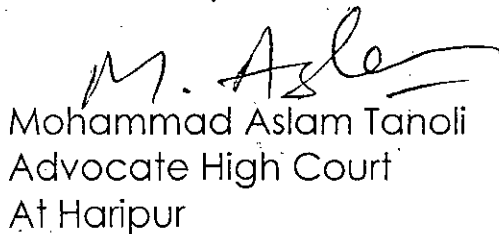 M. Aslam
Mohammad Aslam Tanoli
Advocate High Court
At Haripur